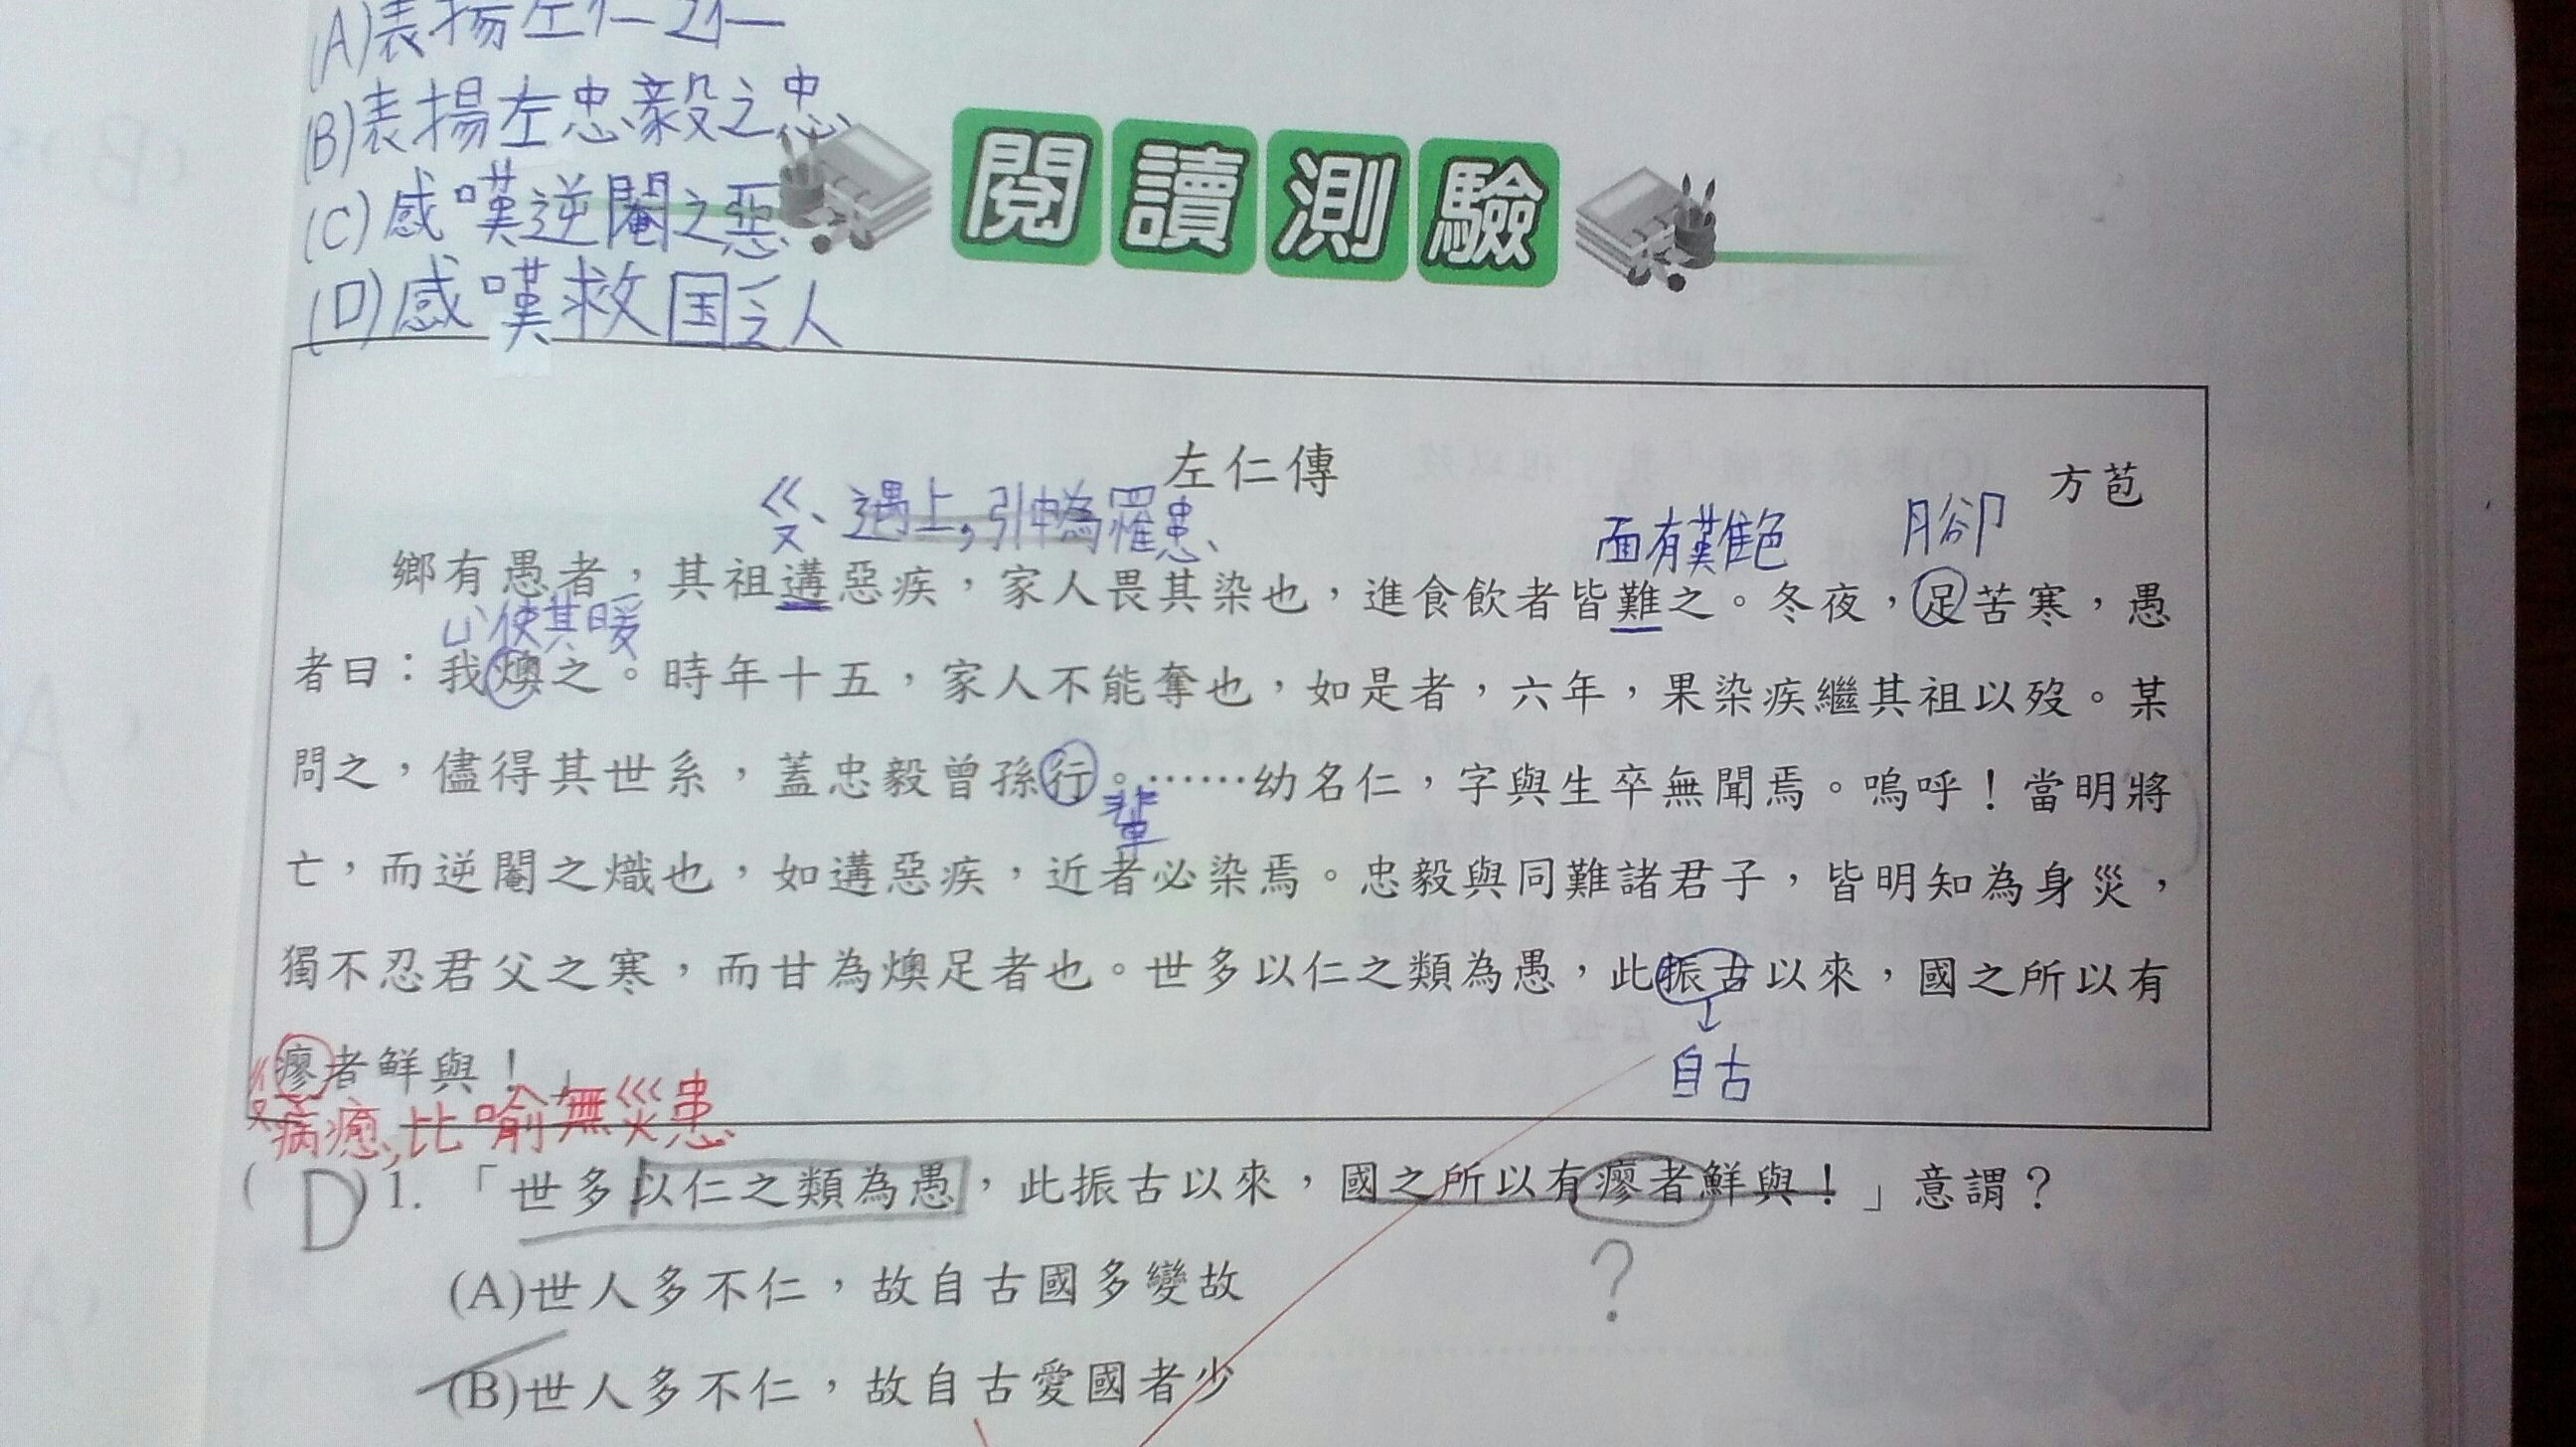 (B)表揚左忠毅之忠
(C)感嘆逆閹之惡
(D)感嘆救国之人
閱讀測驗
左仁傳
方苞
ㄍㄡˋ遇上,引申為罹患、
面有難色
腳
鄉有愚者，其祖遘惡疾，家人畏其染也，進食飲者皆難之。冬夜，足苦寒，愚
使其暖
者曰：我燠之。時年十五，家人不能奪也，如是者，六年，果染疾繼其祖以歿。某
問之，儘得其世系，蓋忠毅曾孫行。……幼名仁，字與生卒無聞焉。嗚呼！當明將
輩
亡，而逆閹之熾也，如遘惡疾，近者必染焉。忠毅與同難諸君子，皆明知為身災，
獨不忍君父之寒，而甘為燠足者也。世多以仁之類為愚，此振古以來，國之所以有
自古
瘳者鮮與！
病癒,比喻無災患
( D )1.「世多以仁之類為愚，此振古以來，國之所以有瘳者鮮與！」意謂？
?
(A)世人多不仁，故自古國多變故
(B)世人多不仁，故自古愛國者少